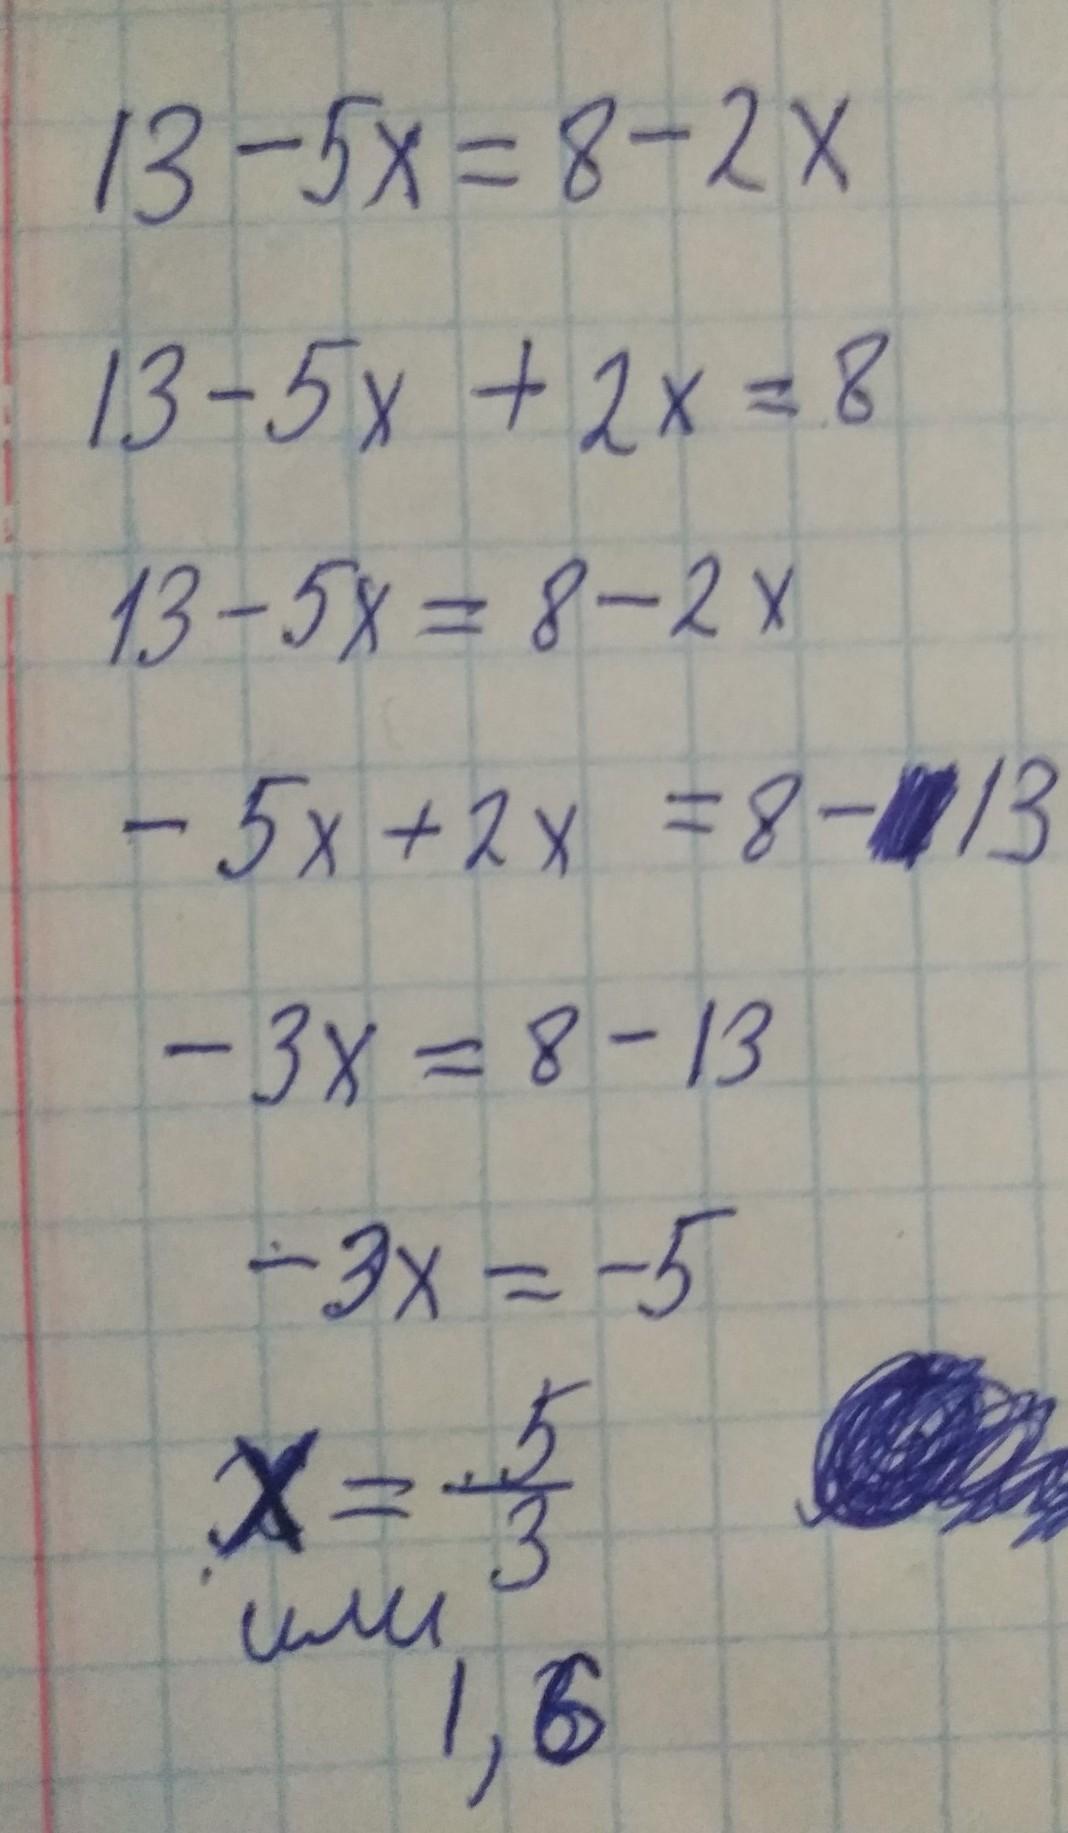 13 - 5x = 8 - 2x
13 - 5x + 2x = 8
13 - 5x = 8 - 2x
- 5x + 2x = 8 - 13
- 3x = 8 - 13
- 3x = -5
x = 5/3
или
1,6